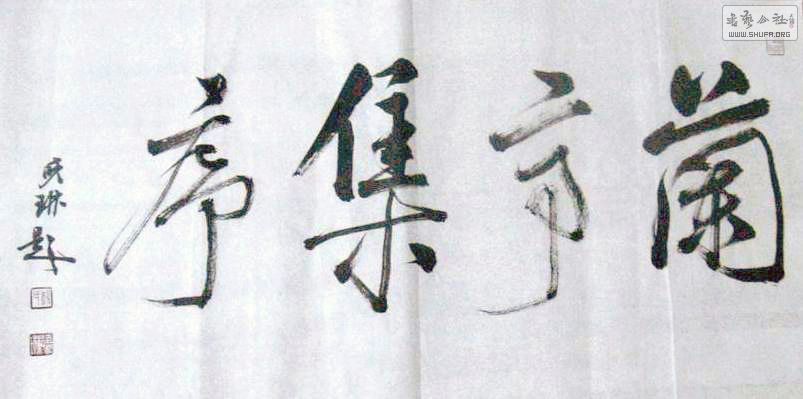 蘭亭集序
琳題
WWW.SHUFA.ORG